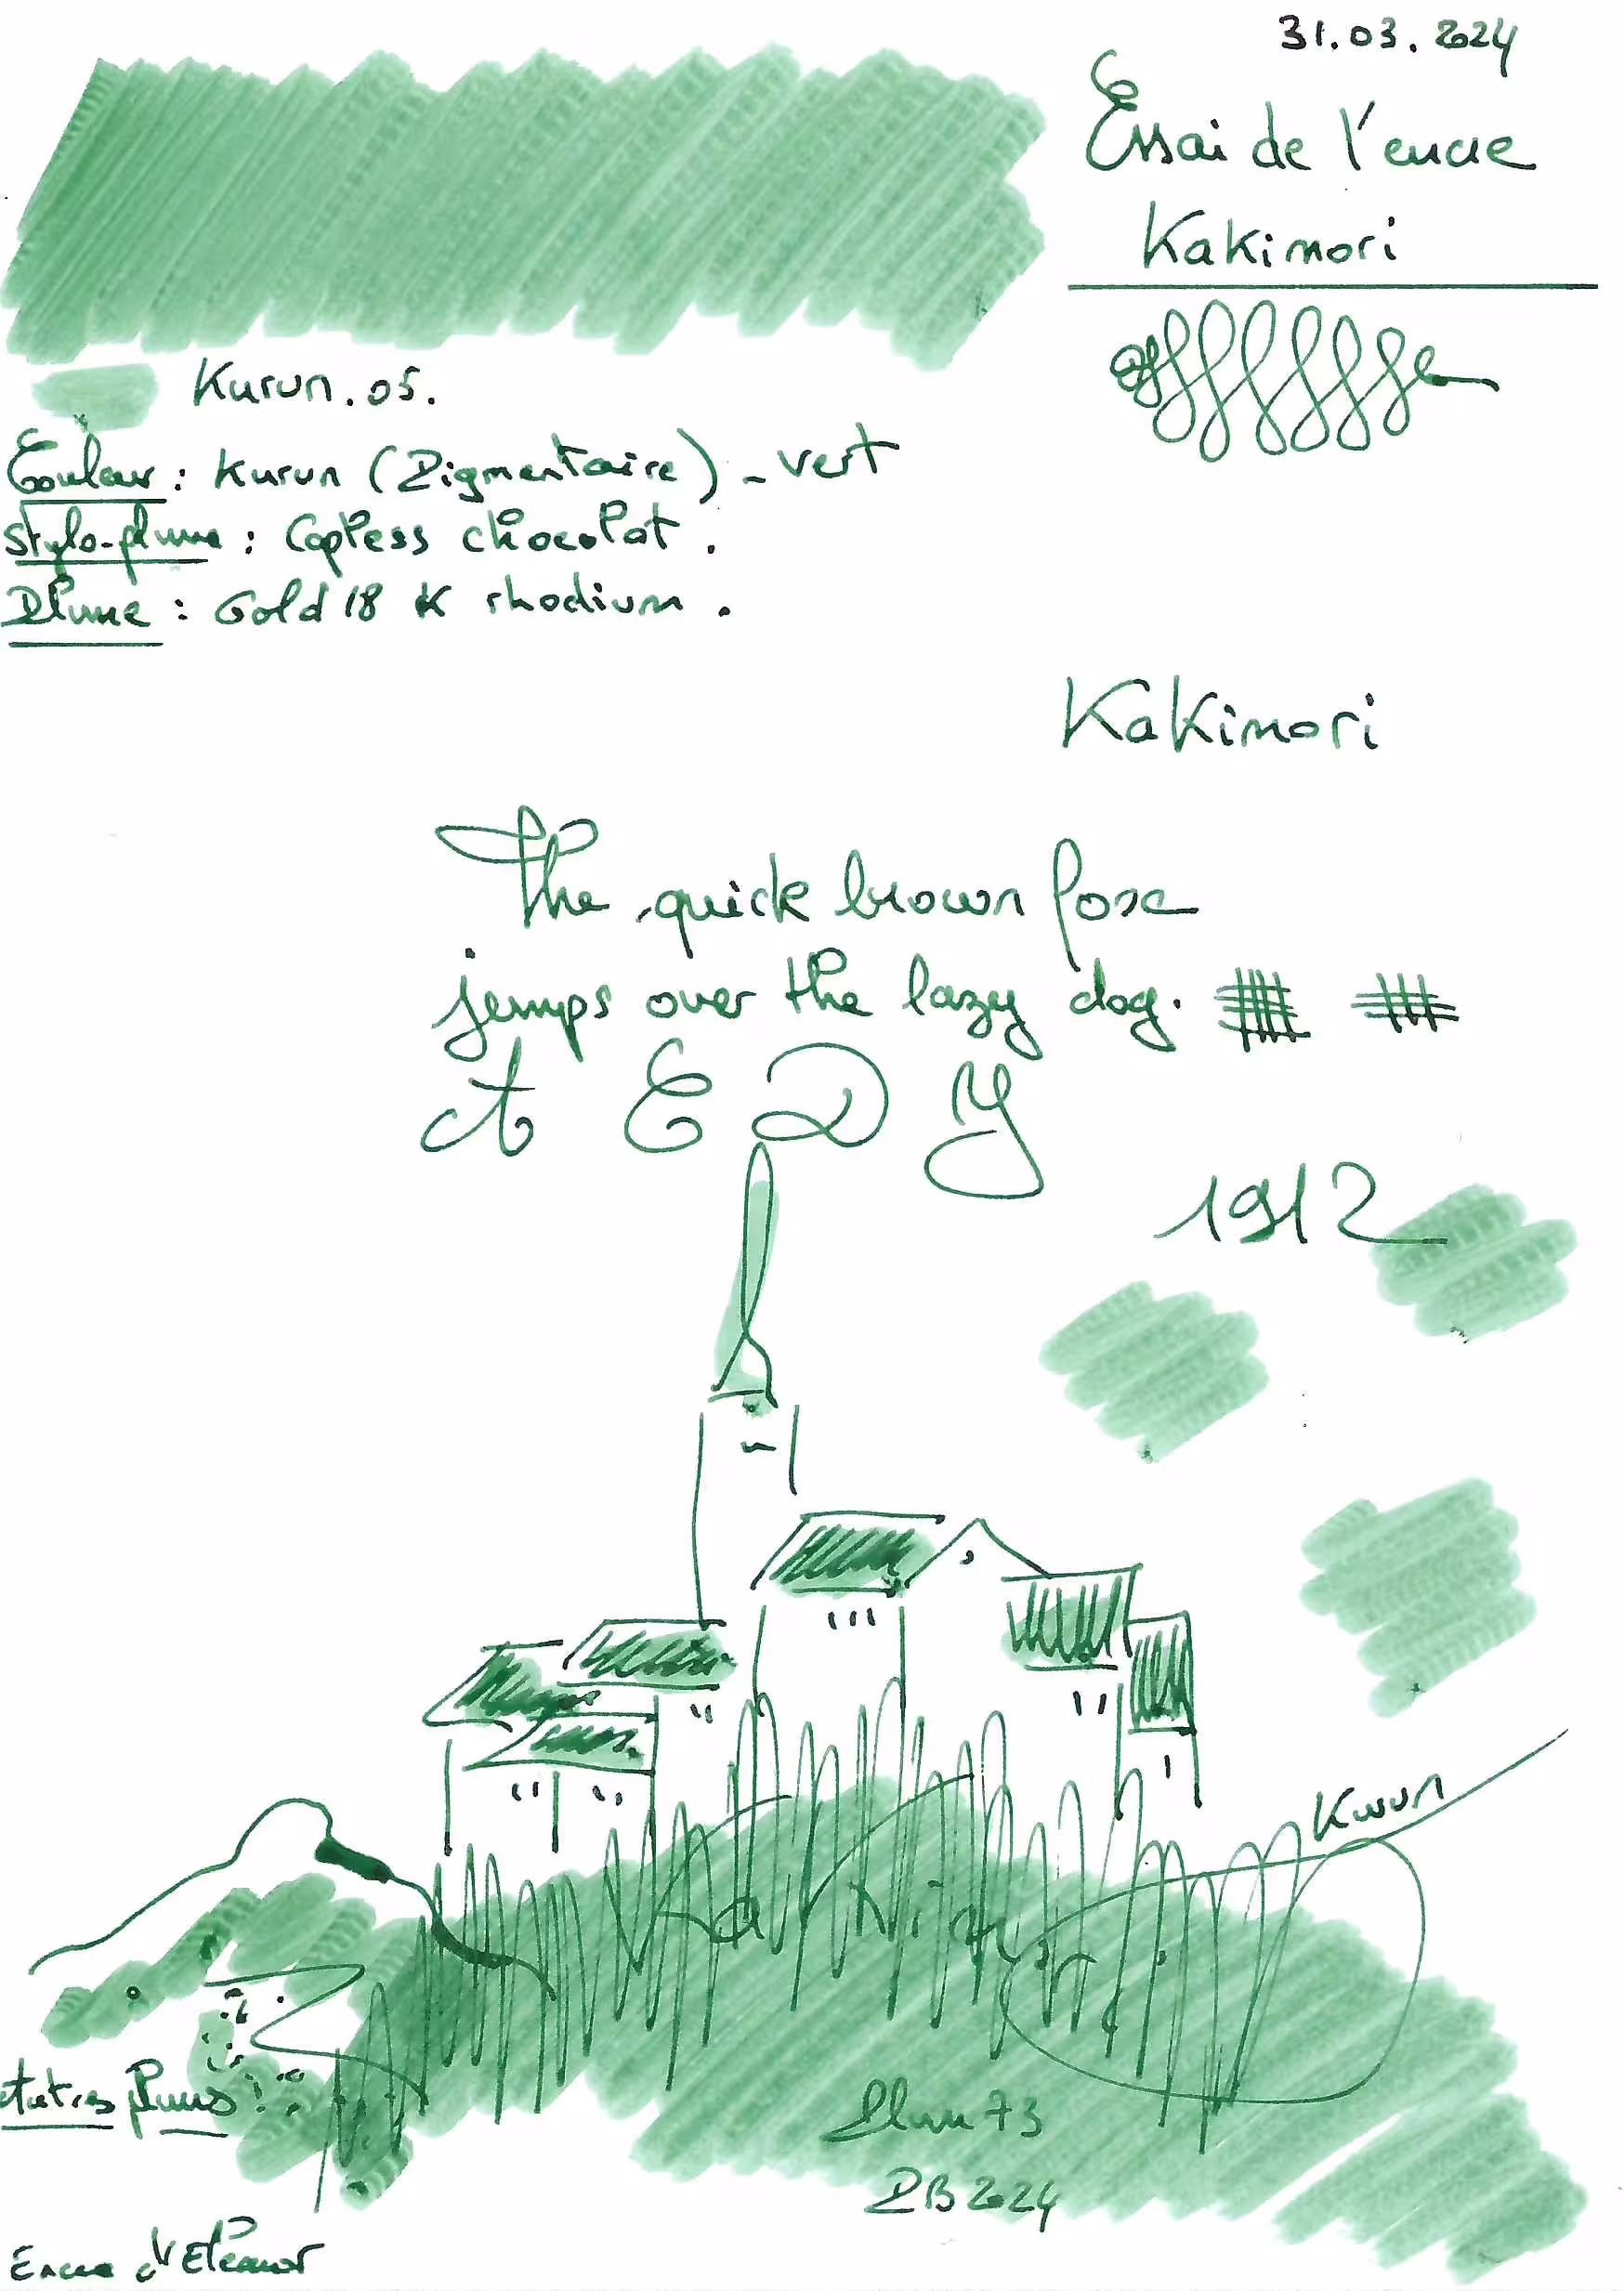 31.03.2024
Essai de l'encre
Kakimori
Kurun.05.
Couleur : Kurun (Pigmentaire) - vert
Stylo-plume : Capless chocolat.
Plume : Gold 18 K rhodium.
Kakimori
The quick brown fox
jumps over the lazy dog.
A E D Y
1912
Kurun
Kakimori
Autres plumes :
Plum 73
PB 2024
Encre d'Eleanor